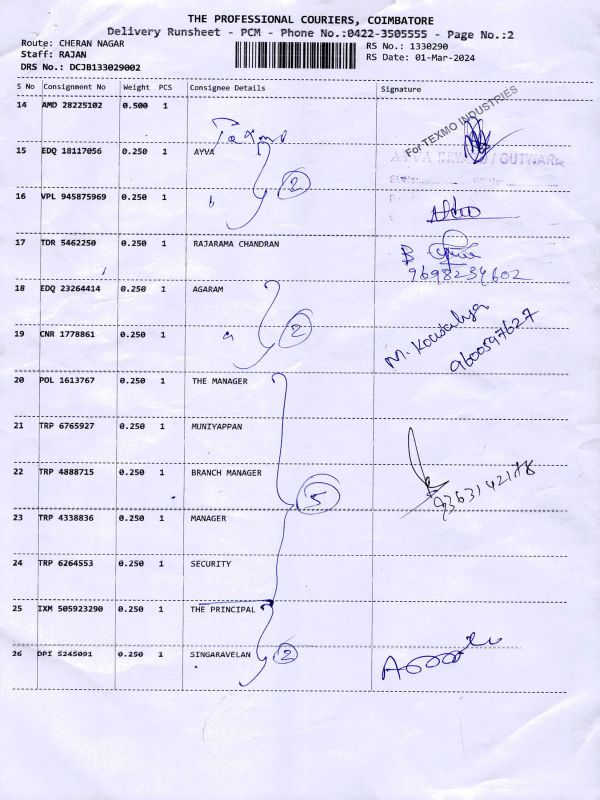 THE PROFESSIONAL COURIERS, COIMBATORE
Delivery Runsheet - PCM - Phone No.:0422-3505555 - Page No.:2
Route: CHERAN NAGAR
RS No.: 1330290
Staff: RAJAN
RS Date: 01-Mar-2024
DRS No.: DCJB133029002
S No Consignment No Weight PCS Consignee Details Signature
14 AMD 28225102 0.500 1
For TEXMO INDUSTRIES
Texmo
15 EDQ 18117056 0.250 1 AYVA
/ OUTWARD
2
16 VPL 945875969 0.250 1
17 TDR 5462250 0.250 1 RAJARAMA CHANDRAN
9698234602
18 EDQ 23264414 0.250 1 AGARAM
19 CNR 1778861 0.250 1
2
M. Kowsalya
9600597627
20 POL 1613767 0.250 1 THE MANAGER
21 TRP 6765927 0.250 1 MUNIYAPPAN
22 TRP 4888715 0.250 1 BRANCH MANAGER
5
23 TRP 4338836 0.250 1 MANAGER
24 TRP 6264553 0.250 1 SECURITY
25 IXM 505923290 0.250 1 THE PRINCIPAL
26 DPI 5245091 0.250 1 SINGARAVELAN 2